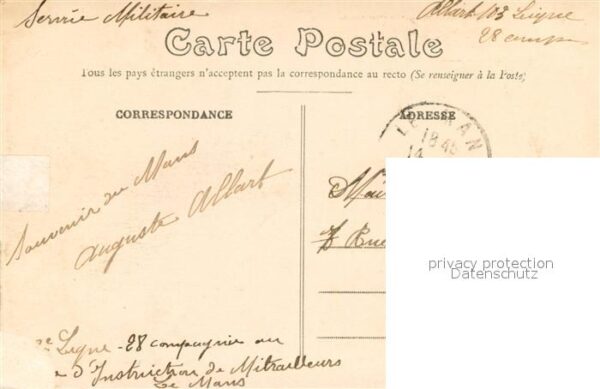 Servie Militaire
Allart 103 Leigne
28 comp
Carte Postale
Tous les pays étrangers n'acceptent pas la correspondance au recto (Se renseigner à la Poste)
CORRESPONDANCE
ADRESSE
LE MAN
18 45
14
Souvenir du Mans
Auguste Allart
Rue
privacy protection
Datenschutz
Ligne - 28 compagnie au
d'Instruction de Mitrailleurs
Le Mans